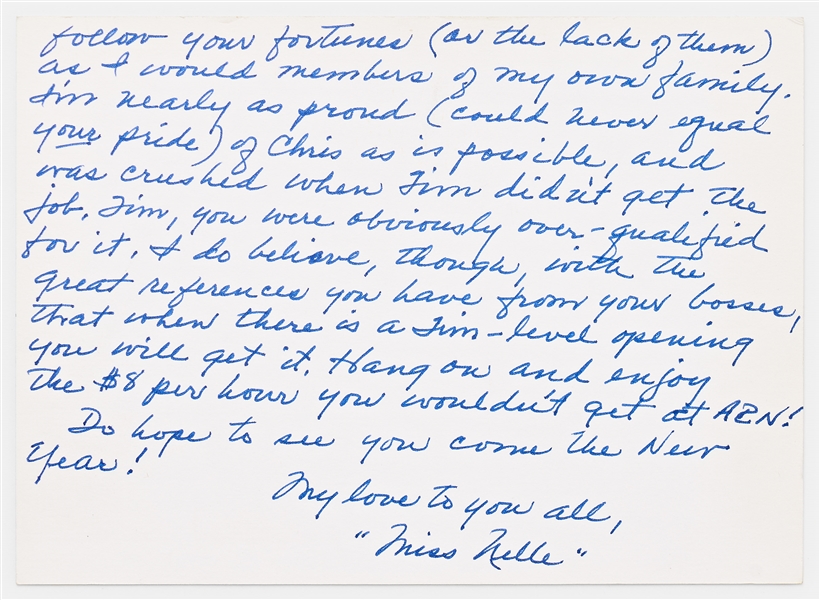 follow your fortunes (or the lack of them)
as I would members of my own family.
I'm nearly as proud (could never equal
your pride) of Chris as is possible, and
was crushed when Tim didn't get the
job. Tim, you were obviously over-qualified
for it. I do believe, though, with the
great references you have from your bosses,
that when there is a Tim-level opening
you will get it. Hang on and enjoy
the $8 per hour you wouldn't get at ABN!
Do hope to see you come the New
Year!
My love to you all,
"Miss Nelle"